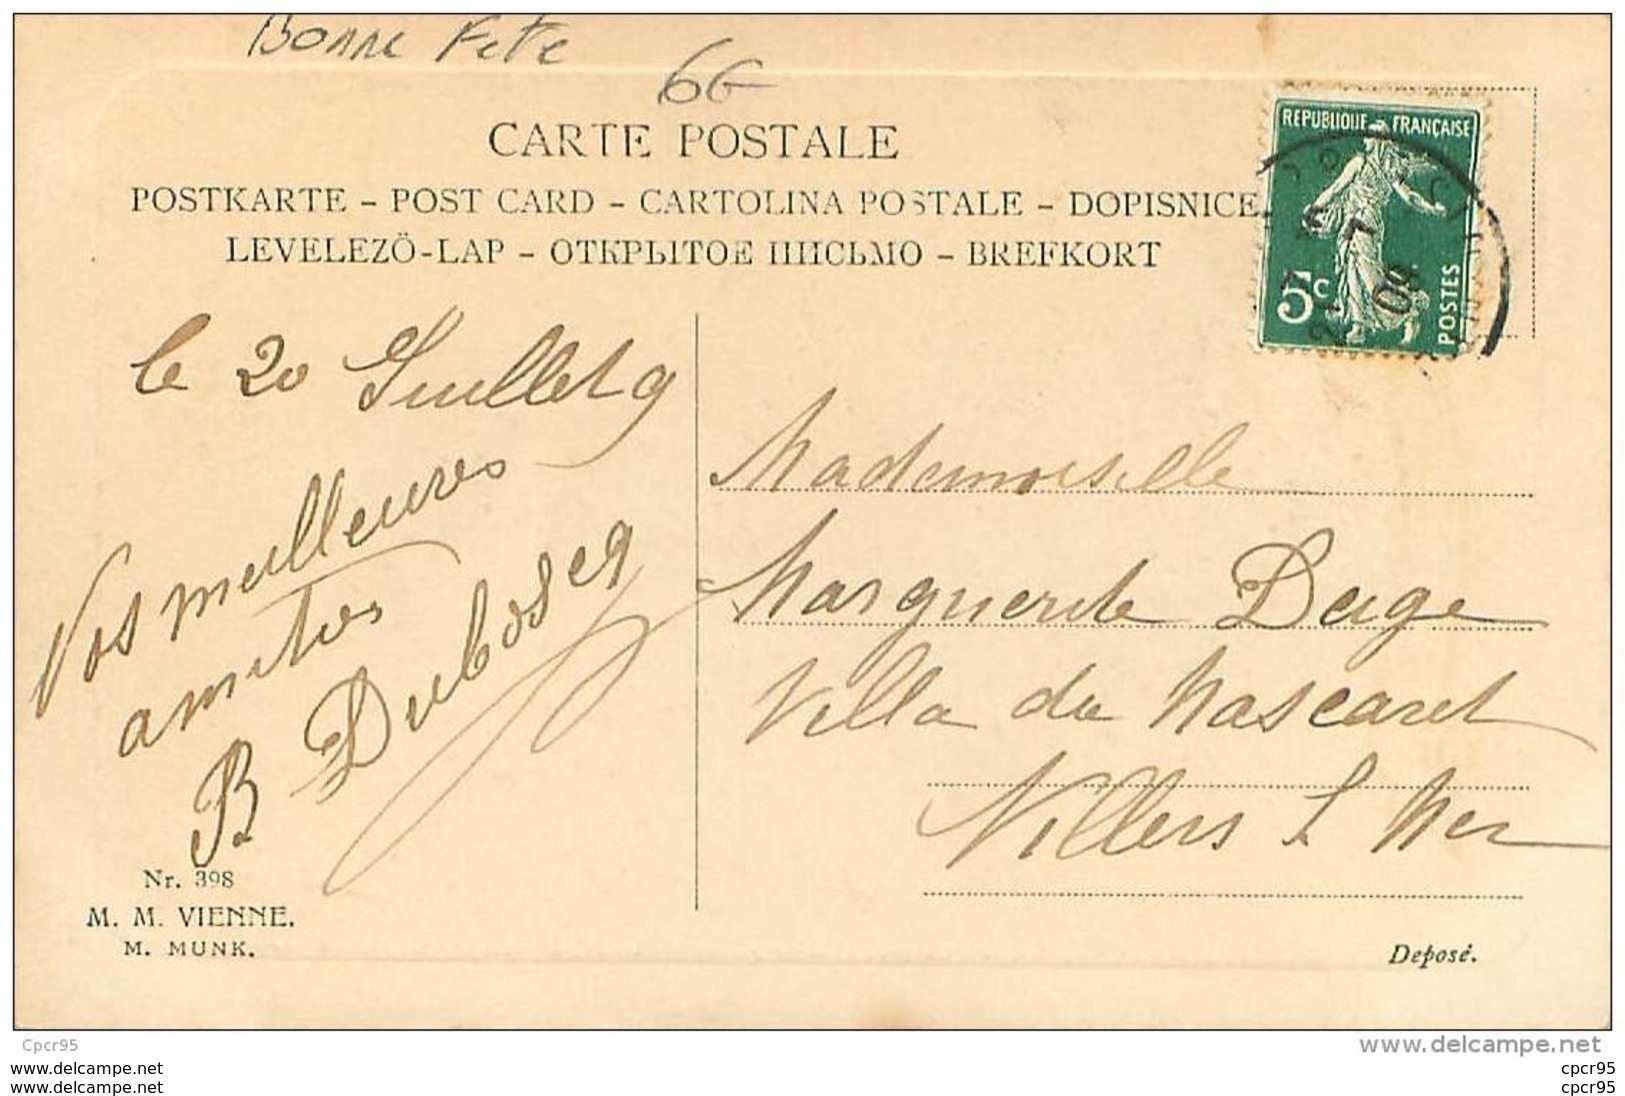 Bonne Fete
6G
CARTE POSTALE
POSTKARTE – POST CARD – CARTOLINA POSTALE – DOPISNICE
LEVELEZÖ-LAP – ОТКРЫТОЕ ПИСЬМО – BREFKORT
REPUBLIQUE FRANÇAISE
5c
POSTES
le 20 Juillet 9
Vos meilleures
amitiés
B Duboscq
Mademoiselle
Marguerite Duge
Villa du Mascaret
Villers s Mer
Nr. 398
M. M. VIENNE.
M. MUNK.
Deposé.
Cpcr95
www.delcampe.net
cpcr95
cpcr95
cpcr95
cpcr95